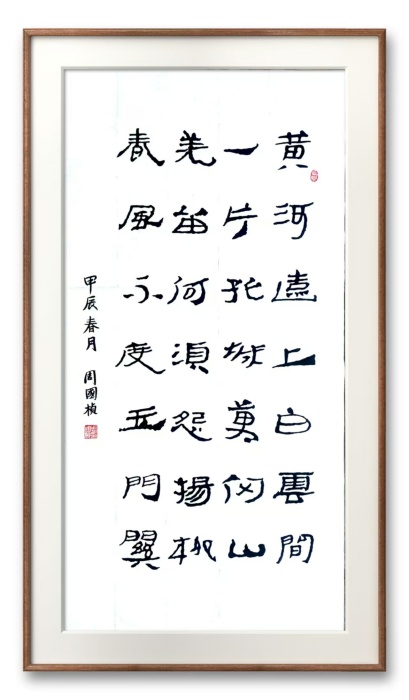 黄河遠上白雲間
一片孤城萬仞山
羌笛何須怨揚柳
春風不度玉門關
甲辰春月 周國楨